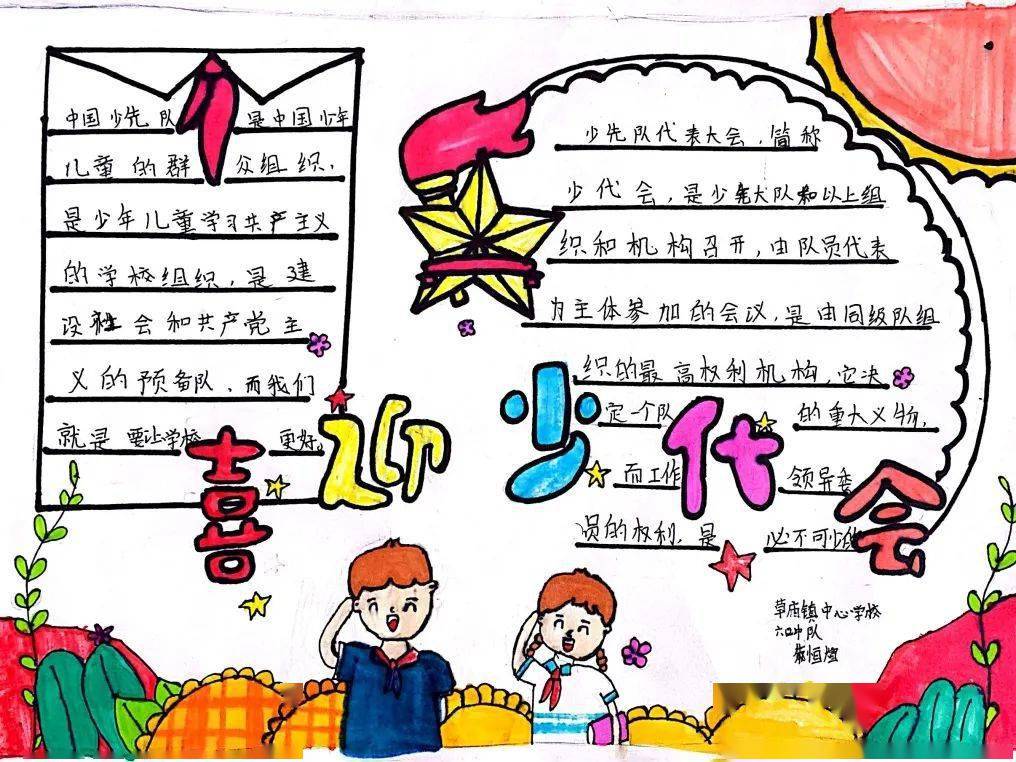 中国少先队是中国少年
儿童的群众组织，
是少年儿童学习共产主义
的学校组织，是建
设社会和共产党主
义的预备队，而我们
就是要让学校更好。
少先队代表大会，简称
少代会，是少先大队和以上组
织和机构召开，由队员代表
为主体参加的会议，是由同级队组
织的最高权利机构，它决
定一个队的重大义物，
而工作领导委
员的权利，是必不可少的
喜迎少代会
草庙镇中心学校
中队
恒